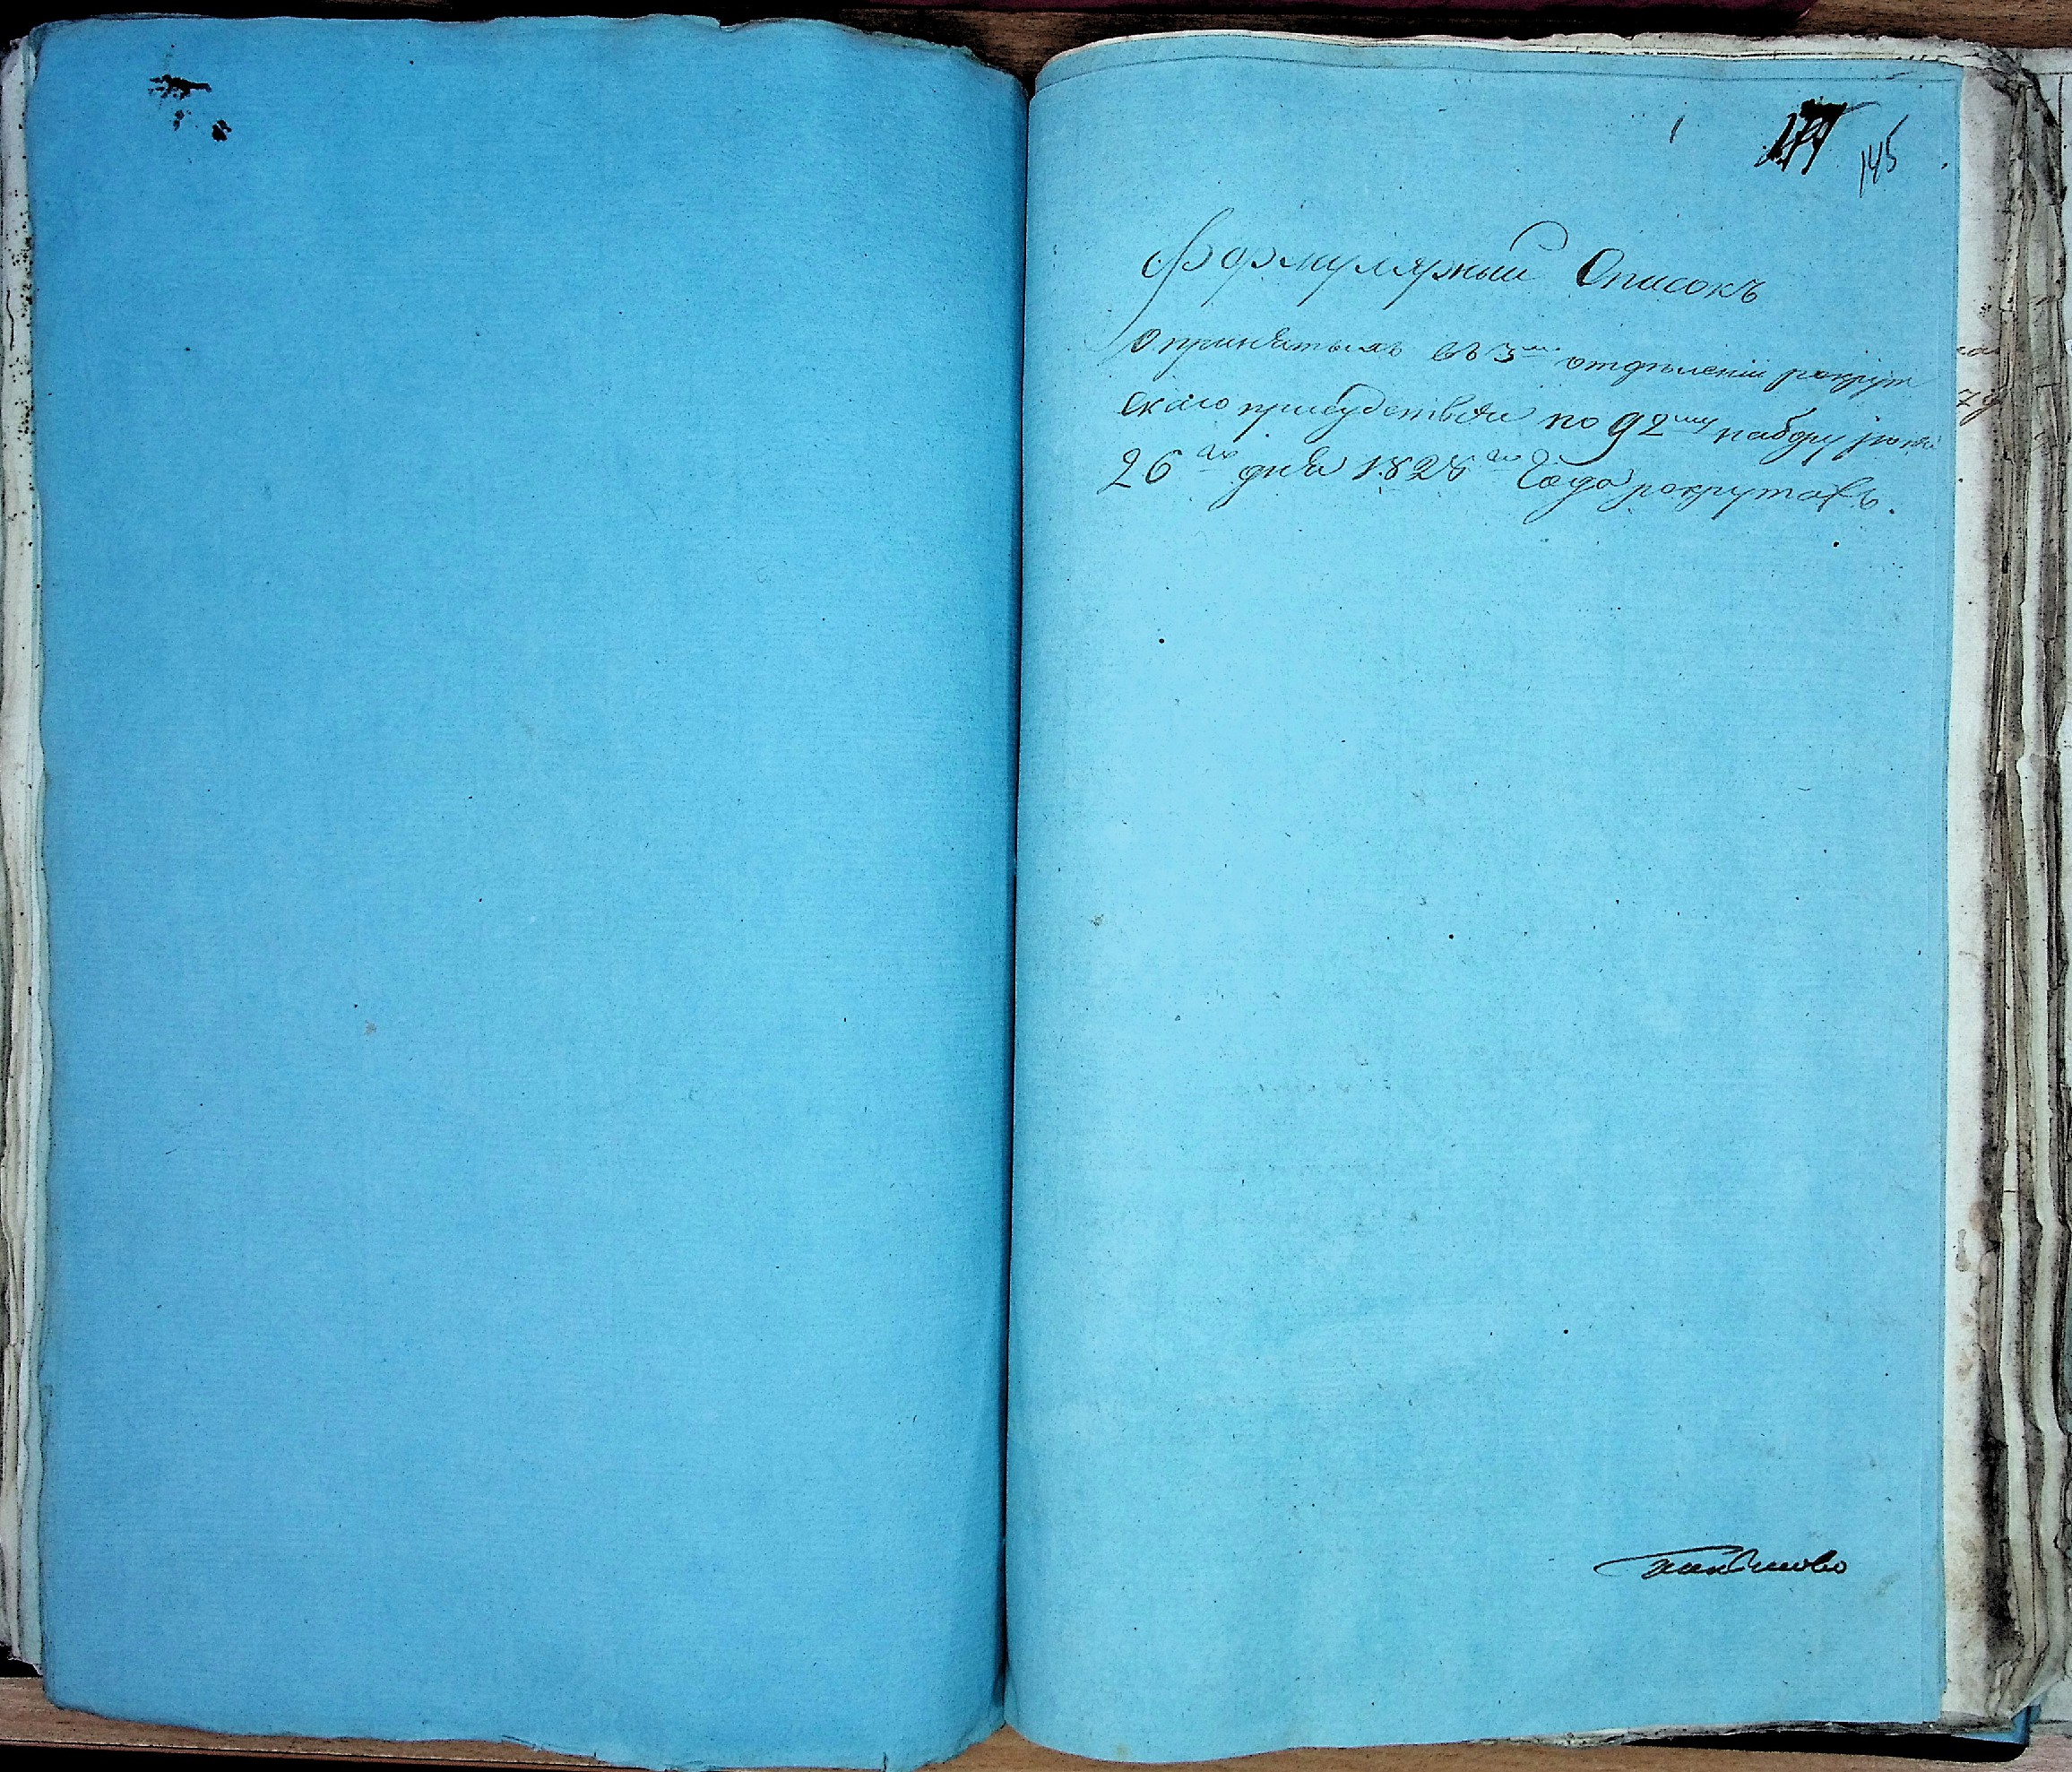 145
Формулярный Списокъ
о принятыхъ въ 3мъ отделении рекрут
скаго присудствия по 92му набору
26го дня 1828го Года рекрутахъ.